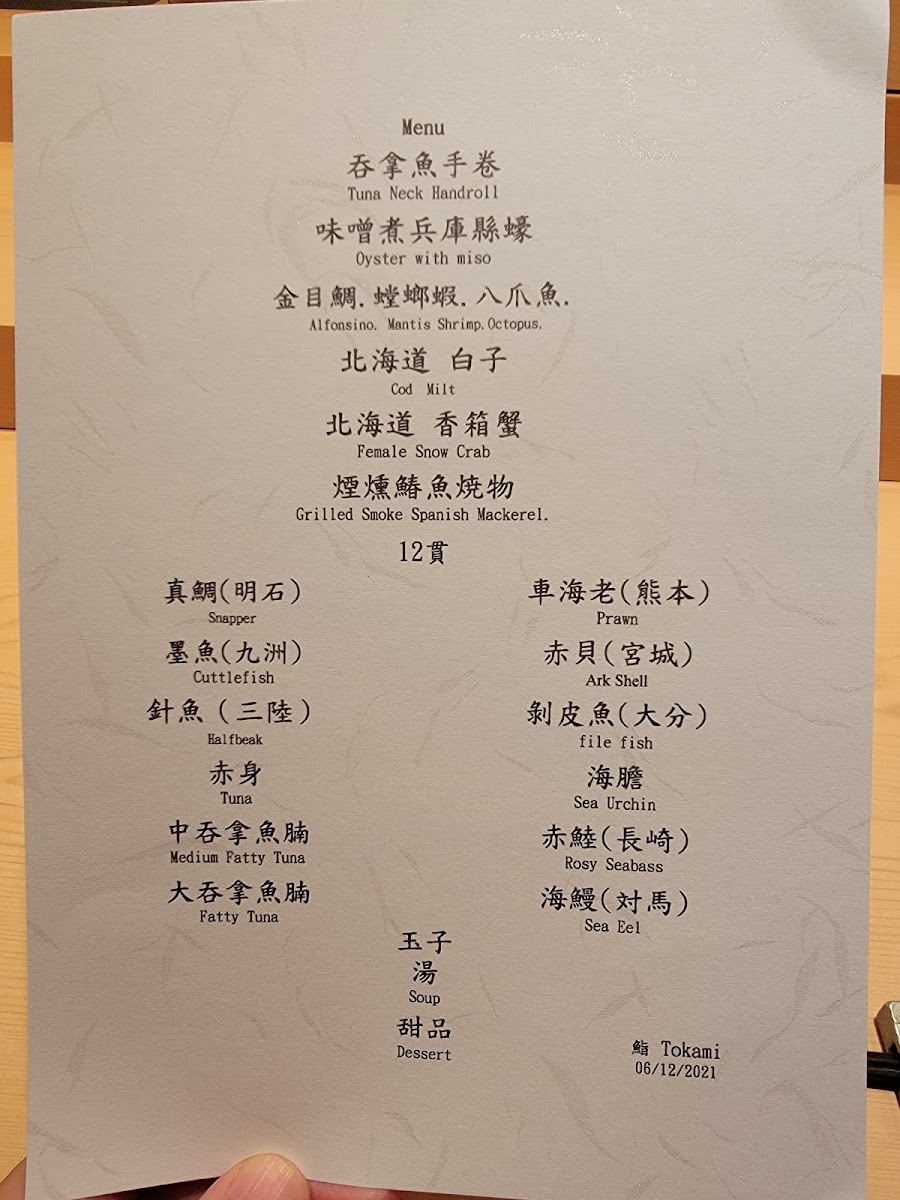 Menu
吞拿魚手卷
Tuna Neck Handroll
味噌煮兵庫縣蠔
Oyster with miso
金目鯛.螳螂蝦.八爪魚.
Alfonsino. Mantis Shrimp.Octopus.
北海道 白子
Cod Milt
北海道 香箱蟹
Female Snow Crab
煙燻鰆魚焼物
Grilled Smoke Spanish Mackerel.
12貫
真鯛(明石)
Snapper
墨魚(九洲)
Cuttlefish
針魚(三陸)
Halfbeak
赤身
Tuna
中吞拿魚腩
Medium Fatty Tuna
大吞拿魚腩
Fatty Tuna
車海老(熊本)
Prawn
赤貝(宮城)
Ark Shell
剝皮魚(大分)
file fish
海膽
Sea Urchin
赤鯥(長崎)
Rosy Seabass
海鰻(対馬)
Sea Eel
玉子
湯
Soup
甜品
Dessert
鮨 Tokami
06/12/2021